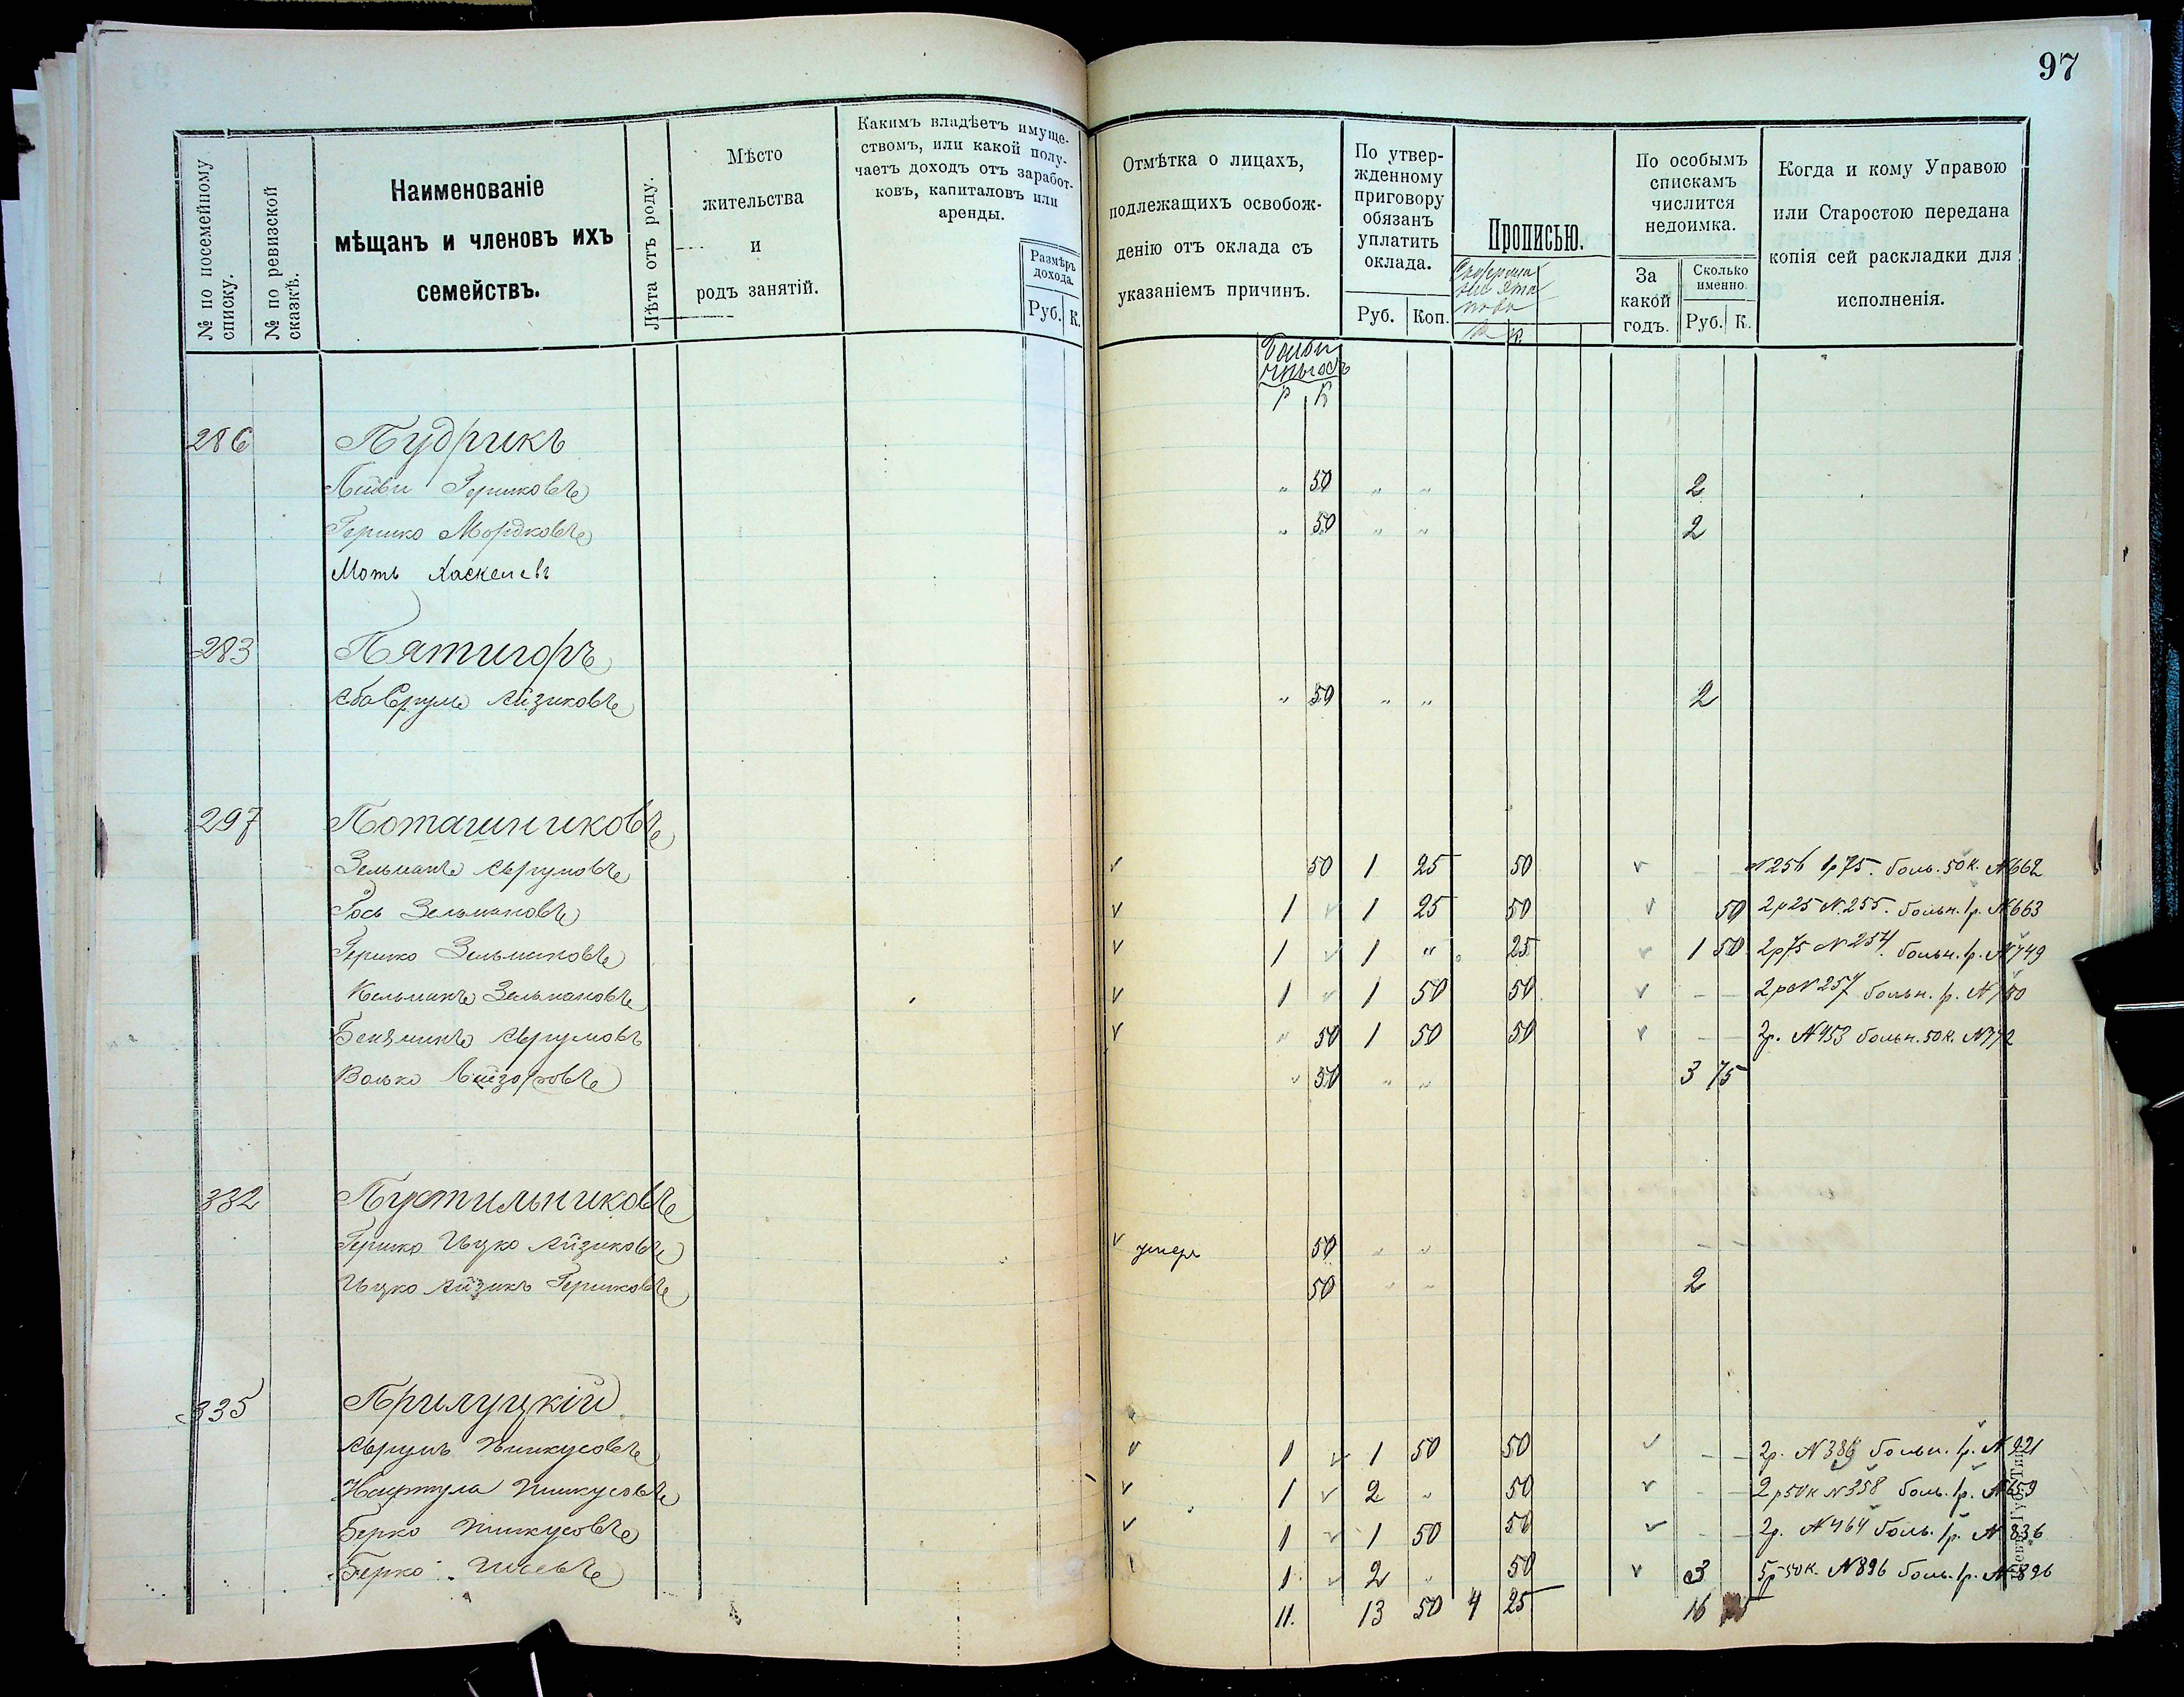 97
№ по посемейному списку.
№ по ревизской сказкѣ.
Наименованіе
мѣщанъ и членовъ ихъ
семействъ.
Лѣта отъ роду.
Мѣсто
жительства
и
родъ занятій.
Какимъ владѣетъ имуще-
ствомъ, или какой полу-
чаетъ доходъ отъ заработ-
ковъ, капиталовъ или
аренды.
Размѣръ
дохода.
Руб. К.
Отмѣтка о лицахъ,
подлежащихъ освобож-
денію отъ оклада съ
указаніемъ причинъ.
По утвер-
жденному
приговору
обязанъ
уплатить
оклада.
Руб. Коп.
Прописью.
По особымъ
спискамъ
числится
недоимка.
За
какой
годъ.
Сколько
именно.
Руб. К.
Когда и кому Управою
или Старостою передана
копія сей раскладки для
исполненія.
Р К
286 Пудрикъ
Лейви Гершковъ " 50 " " 2
Гершко Мордковъ " 50 " " 2
Моть Хаскелевъ
283 Пятигоръ
Аба Срулъ Айзиковъ " 50 " " 2
297 Поташниковъ
Зельманъ Аврумовъ 50 1 25 50 N 256 1р75. боль. 50к. N662
Іось Зельмановъ 1 1 25 50 50 2р25 N.255. больн. 1р. N663
Гершко Зельмановъ 1 1 " 25 1 50 2р75 N254. больн. 1р. N749
Кельманъ Зельмановъ 1 " 1 50 50 2р N257 больн. 1р. N750
Беняминъ Аврумовъ " 50 1 50 50 2р. N453 больн. 50к. N772
Волько Лейзоровъ " 50 " " 3 75
332 Пустильниковъ
Гершко Ицко Айзиковъ умеръ 50 " "
Ицко Айзикъ Гершковъ 50 " " 2
335 Прилуцкій
Аврумъ Пинкусовъ 1 1 50 50 2р. N386 больн. 1р. N921
Нафтула Пинкусовъ 1 2 " 50 2р50к N358 боль. 1р. N659
Берко Пинкусовъ 1 1 50 50 2р. N464 боль. 1р. N836
Берко Іосевъ 1 2 " 50 3 5р50к. N896 боль. 1р. N896
11. 13 50 4 25 16